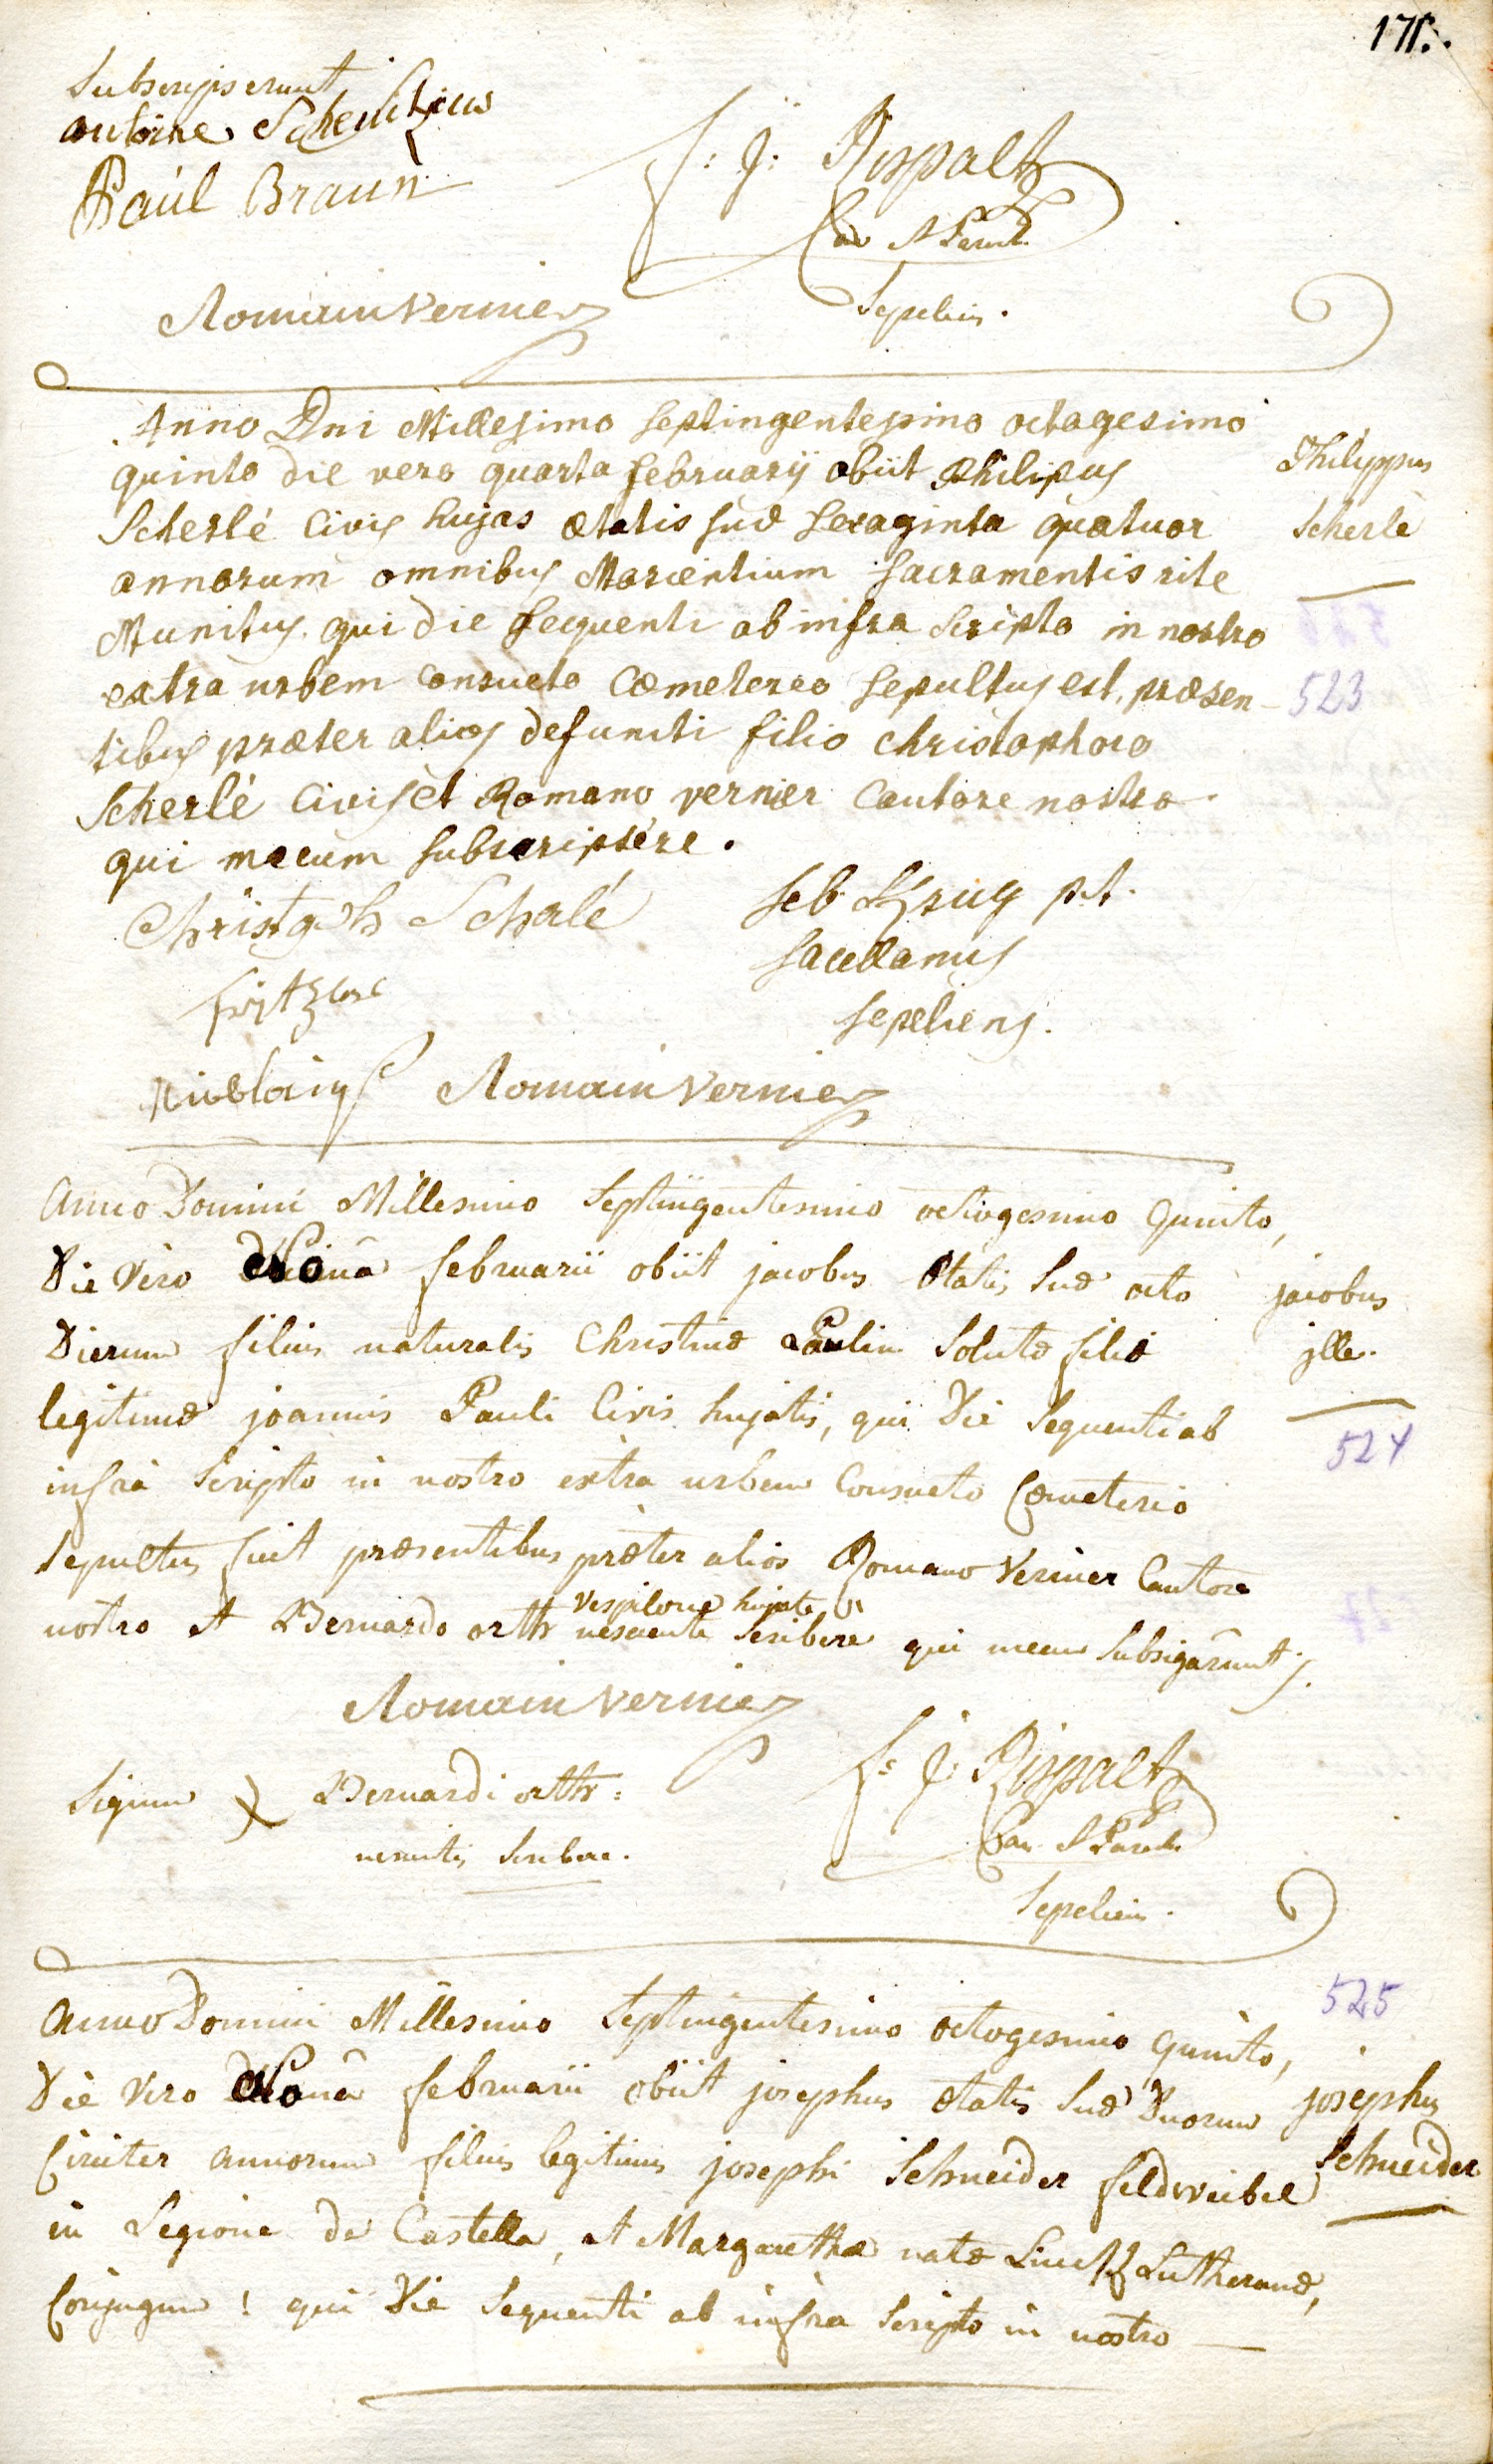 171.
Subscripserunt
antoine
Paul Braun
f: J: Rispalt
Sepeliens.
Romain Vernier
Anno Dni Millesimo septingentesimo octogesimo
quinto die vero quarta februarij obiit Philipus
Scherlé Civis hujas ætatis suæ sexaginta quatuor
annorum omnibus Morientium sacramentis rite
Munitus. qui die sequenti ab infra scripto in nostro
extra urbem consueto Cœmetereo sepultus est, præsen-
tibus præter alios defuncti filio christophoro
Scherlé Civis et Romano vernier Cantore nostro.
qui mecum subscripsére.
Philyppus
Scherlé
523
Christoph Scherlé
seb Krug p.t.
sacellanus
sepeliens.
Romain Vernier
Anno Domini Millesimo Septingentesimo octogesimo Quinto,
Die Vero Nonâ februarii obiit jacobus ætatis suæ octo
Dierum filius naturalis Christinæ Paulin Solutæ filiæ
legitimæ joannis Pauli Civis hujatis, qui Die Sequenti ab
infrà Scripto in nostro extra urbem Consueto Cœmeterio
Sepultus fuit præsentibus præter alios Romano Vernier Cantore
nostro et Bernardo orth vespilone hujate nesciente Scribere qui mecum Subsignârunt.
jacobus
jlle.
524
Romain Vernier
Signum X Bernardi orth:
nescientis Scribere.
f: J: Rispalt
Sepeliens.
525
Anno Domini Millesimo Septingentesimo octogesimo Quinto,
Die Vero Nonâ februarii obiit josephus ætatis suæ Duorum
Circiter annorum filius legitimus josephi Schneider feldweibel
in Legione de Castella, et Margarethæ natæ Lutheranæ,
Conjugum! qui Die Sequenti ab infra Scripto in nostro —
josephus
Schneider